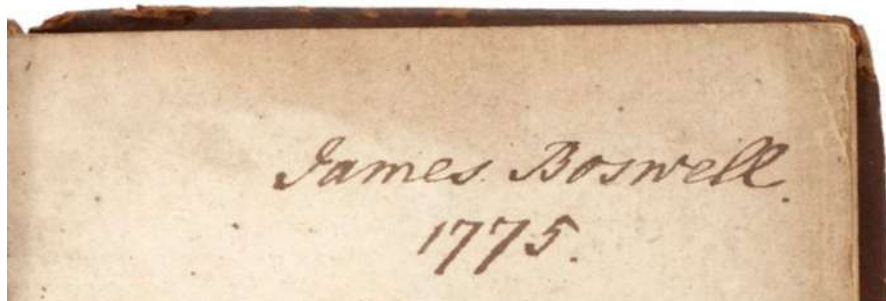 James Boswell.
1775.